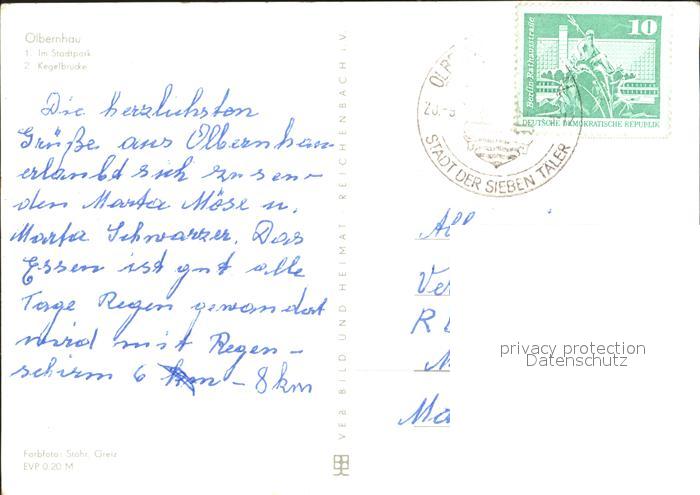 Olbernhau
1. Im Stadtpark
2. Kegelbrücke
Die herzlichsten
Grüße aus Olbernhau
erlaubt sich zu sen-
den Marta Möse u.
Marta Schwarzer. Das
Essen ist gut alle
Tage Regen gewandat
wird mit Regen-
schirm 6 - 8 km
Farbfoto: Stohr, Greiz
EVP 0,20 M
VEB BILD UND HEIMAT · REICHENBACH i. V.
STADT DER SIEBEN TÄLER
10
Berlin-Rathausstraße
DEUTSCHE DEMOKRATISCHE REPUBLIK
privacy protection
Datenschutz